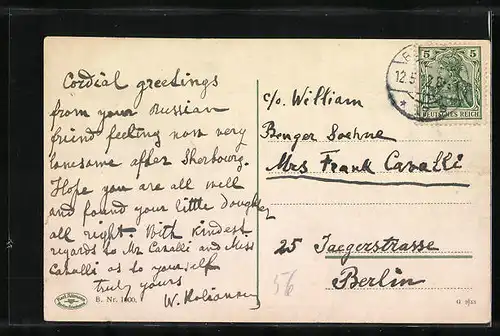 Cordial greetings
from your Russian
friend feeling now very
lonesome after Sherbourg.
Hope you are all well
and found your little doughter
all right. With kindest
regards to Mr Cavalli and Miss
Cavalli as to yourself
truly yours
W.
c/o. William
Benger Soehne
Mrs Frank Cavalli
25 Jaegerstrasse
Berlin
56
5 5
DEUTSCHES REICH
12.5
B. Nr. 1400.